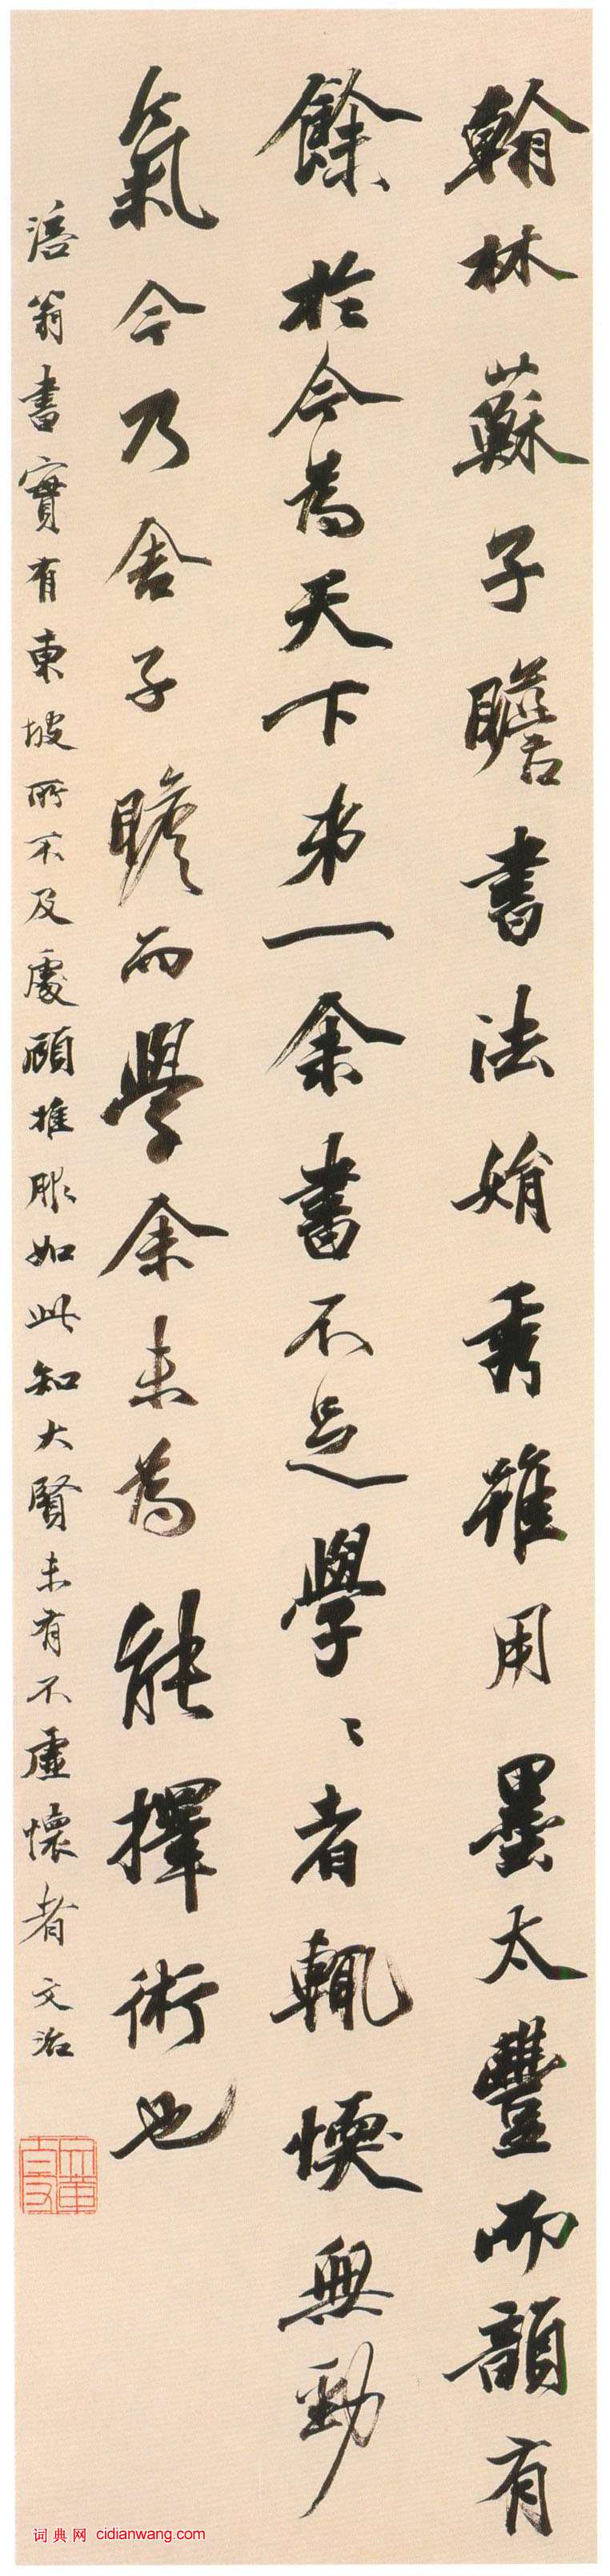 翰林蘇子瞻書法娟秀雖用墨太豐而韻有
餘於今為天下第一余書不足學〻者輒愞無勁
氣今乃舍子瞻而學余未為能擇術也
涪翁書實有東坡所不及處顧推服如此知大賢未有不虛懷者文治
词典网 cidianwang.com